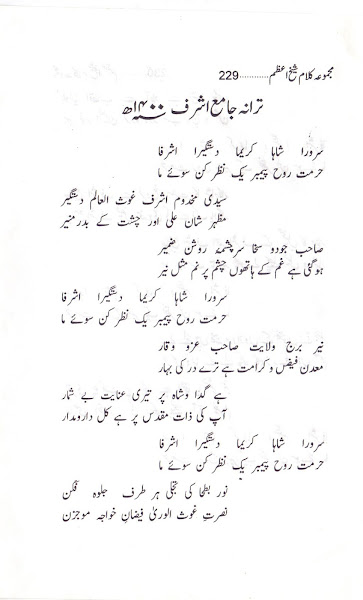 مجموعہ کلام شیخ اعظم............229
ترانہ جامع اشرف ۱۴۰۰ھ
سرورا شاہا کریما دستگیرا اشرفا
حرمت روح پیمبر یک نظر کن سوئے ما
سیدی مخدوم اشرف غوث العالم دستگیر
مظہر شان علی اور چشت کے بدر منیر
صاحب جودو سخا سرچشمۂ روشن ضمیر
ہوگئی ہے غم کے ہاتھوں چشم پر نم مثل نیر
سرورا شاہا کریما دستگیرا اشرفا
حرمت روح پیمبر یک نظر کن سوئے ما
نیر برج ولایت صاحب عزو وقار
معدن فیض و کرامت ہے ترے در کی بہار
ہے گدا وشاہ پر تیری عنایت بے شمار
آپ کی ذات مقدس پر ہے کل دارومدار
سرورا شاہا کریما دستگیرا اشرفا
حرمت روح پیمبر یک نظر کن سوئے ما
نور بطحا کی تجلی ہر طرف جلوہ فگن
نصرتِ غوث الوریٰ فیضانِ خواجہ موجزن